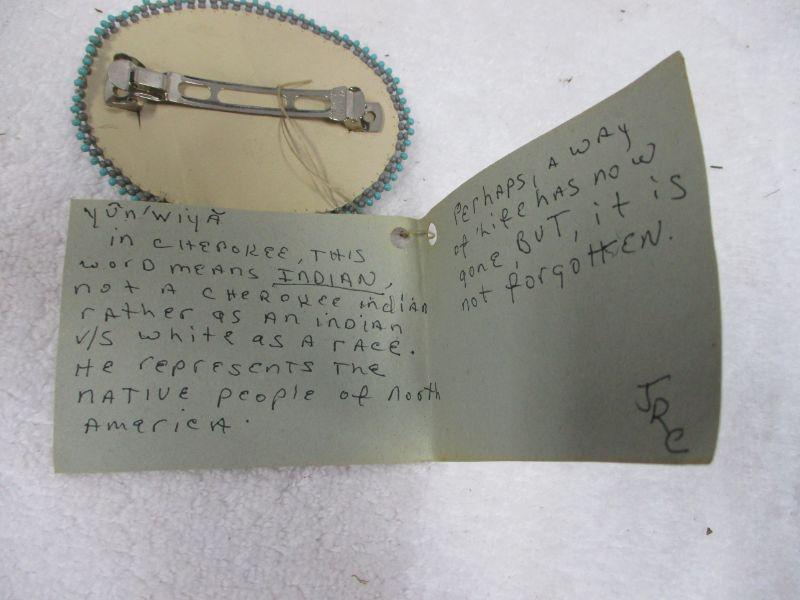 Yûn'wiyă
in CHEROKEE, THIS
WORD MEANS INDIAN,
NOT A CHEROKEE indian
rATHER AS AN iNDIAN
V/S WHITE AS A rACE.
He represents THE
NATIVE people of North
AMERICA.
Perhaps, A WAY
of life HAS NOW
gone, BUT, it is
not forgotten.
JRC